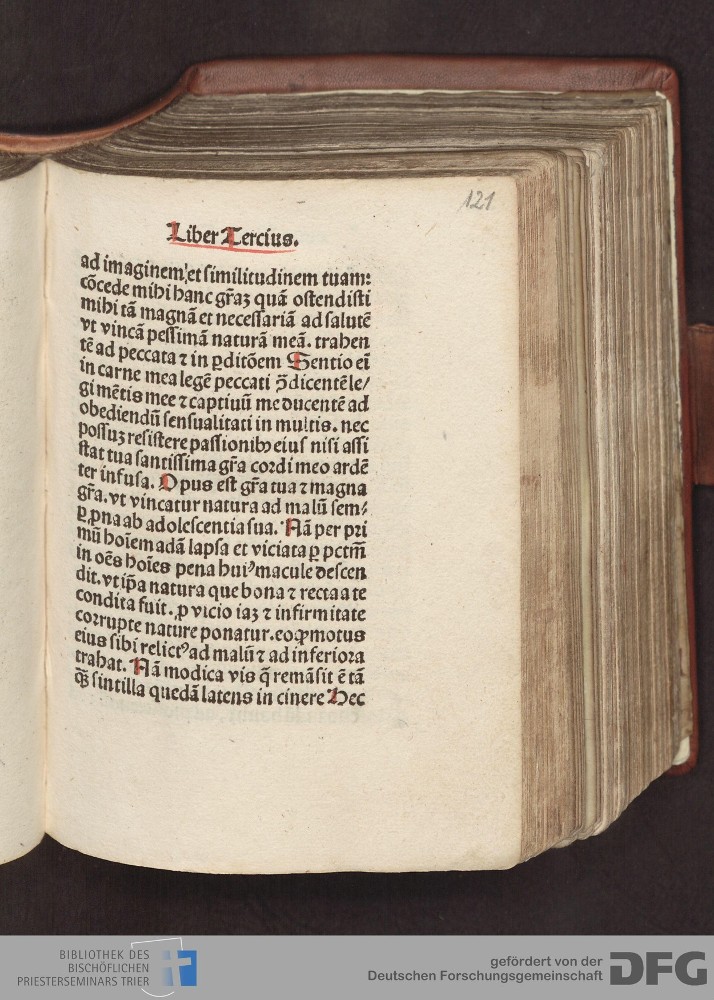 121
Liber Tercius.
ad imaginem, et similitudinem tuam:
cōcede mihi hanc gr̄aꝫ quā ostendisti
mihi tā magnā et necessariā ad salutē
vt vincā pessimā naturā meā. trahen
tē ad peccata ⁊ in ꝑditōem Sentio ei̅
in carne mea legē peccati ꝯ̄dicentē le/
gi mētis mee ⁊ captiuū me ducentē ad
obediendū sensualitati in multis. nec
possuꝫ resistere passionibꝰ eius nisi assi
stat tua santissima gr̄a cordi meo ardē
ter infusa. Opus est gr̄a tua ⁊ magna
gr̄a. vt vincatur natura ad malū sem/
ꝑ ꝓna ab adolescentia sua. Nā per pri
mū hoīem adā lapsa et viciata ꝑ pctm̄
in oēs hoīes pena huiꝰ macule descen
dit. vt ip̄a natura que bona ⁊ recta a te
condita fuit. ꝓ vicio iaꝫ ⁊ infirmitate
corrupte nature ponatur. eo ꝙ motus
eius sibi relictꝰ ad malū ⁊ ad inferiora
trahat. Nā modica vis q̄ remāsit ē tā
ꝙ̄ sintilla quedā latens in cinere Hec
BIBLIOTHEK DES
BISCHÖFLICHEN
PRIESTERSEMINARS TRIER
gefördert von der
Deutschen Forschungsgemeinschaft
DFG